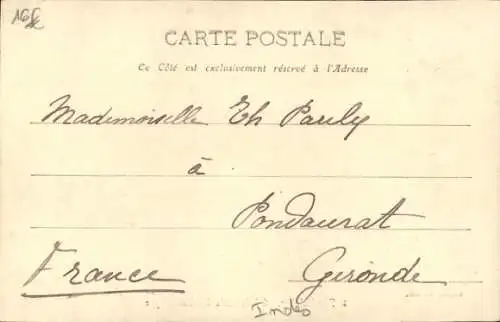 16F
CARTE POSTALE
Ce Côté est exclusivement réservé à l'Adresse
Mademoiselle Th Pauly
à
Pondaurat
France Gironde
Indes